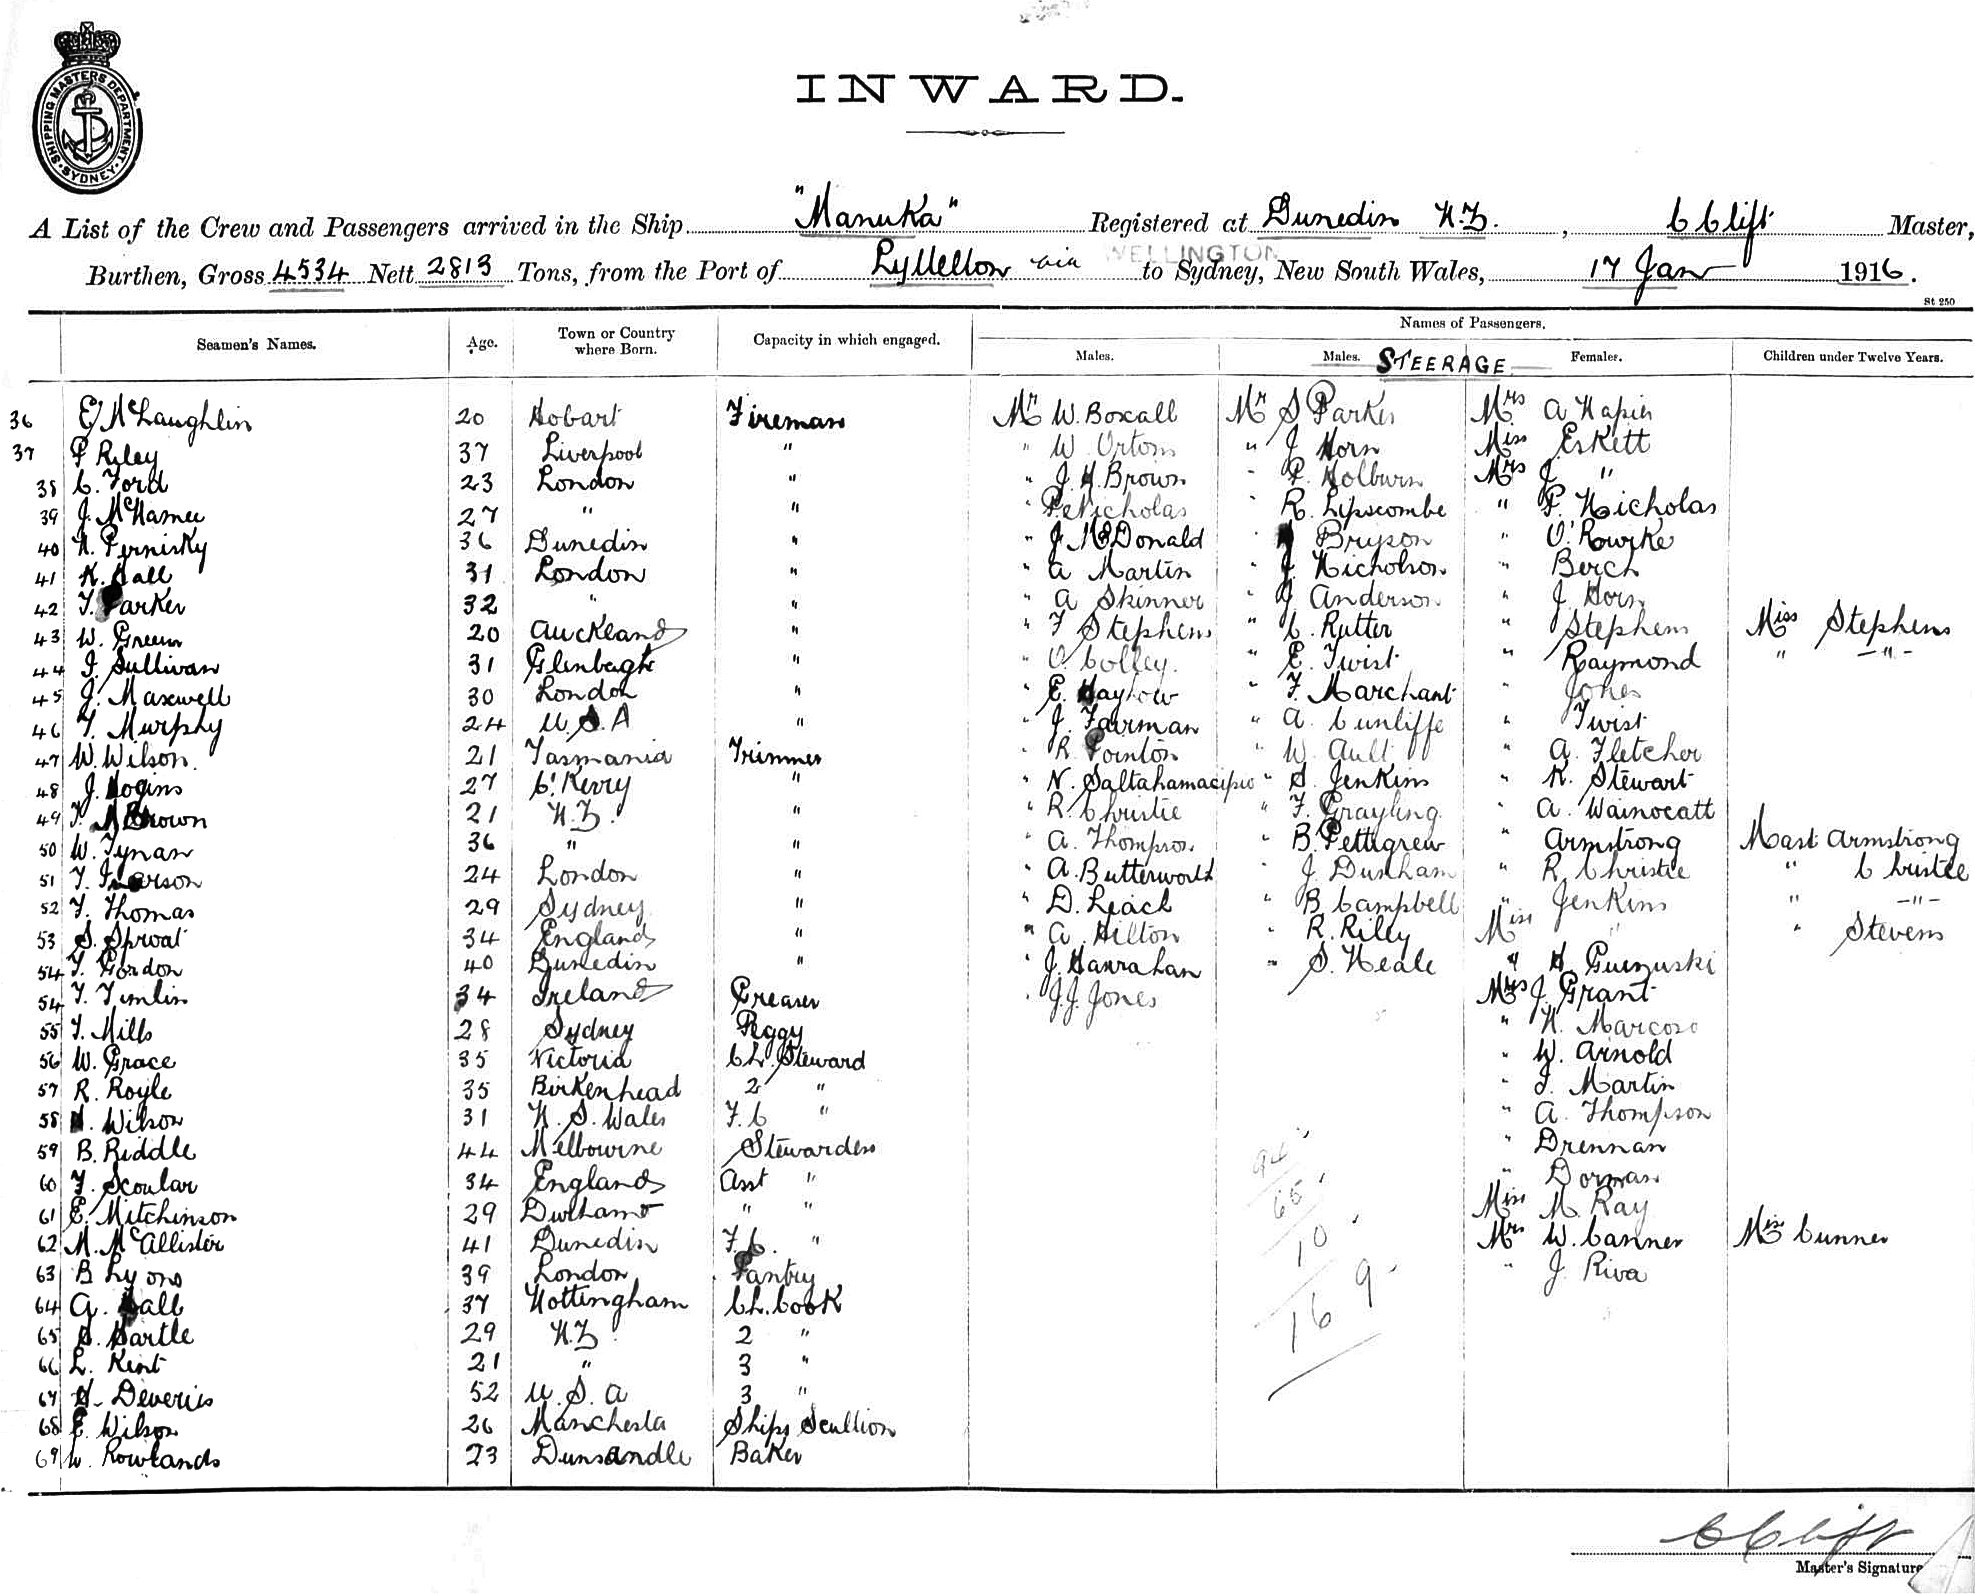 SHIPPING MASTERS DEPARTMENT
SYDNEY
INWARD.
A List of the Crew and Passengers arrived in the Ship "Manuka" Registered at Dunedin N.Z. , C Clift Master,
WELLINGTON
Burthen, Gross 4534 Nett 2813 Tons, from the Port of Lyttelton via to Sydney, New South Wales, 17 Jan 1916.
St 250
Names of Passengers.
Seamen's Names. Age. Town or Country where Born. Capacity in which engaged. Males. Males. STEERAGE Females. Children under Twelve Years.
36 E McLaughlin 20 Hobart Fireman Mr W. Boxall Mr S Parker Mrs A Napier
37 P Riley 37 Liverpool " " W Orton " J Horn Miss Eskett
38 C. Ford 23 London " " J. H. Brown " P. Holburn Mrs J "
39 J. McNamee 27 " " " P. Nicholas " R. Lipscombe " P. Nicholas
40 N. Pernisky 36 Dunedin " " J McDonald " Bryson " O'Rowrke
41 K. Hall 31 London " " A Martin " J. Nicholson " Berch
42 T. Parker 32 " " " A Skinner " J Anderson " J Horn
43 W. Green 20 Auckland " " F Stephens " C. Rutter " Stephens Miss Stephens
44 J. Sullivan 31 Glenbeagh " " O. Colley. " E. Twist " Raymond " -"-
45 J. Maxwell 30 London " " E. Hayhow " F. Marchant " Jones
46 T. Murphy 24 U.S.A " " J. Fairman " A. Cunliffe " Twist
47 W. Wilson. 21 Tasmania Trimmer " R Pointon " W. Ault " A. Fletcher
48 J. Hogins 27 Co. Kerry " " N. Saltahamacipio " S. Jenkins " K. Stewart
49 T. McBrown 21 N.Z. " " R. Christie " F. Grayling " A. Wainocatt
50 W. Tynan 36 " " " A. Thompson " B. Pettigrew " Armstrong Mast Armstrong
51 T. 24 London " " A. Butterworth " J. Dunham " R. Christie " Cristie
52 T. Thomas 29 Sydney " " D. Leach " B Campbell " Jenkins " -"-
53 S. Sproat 34 England " " A. Hilton " R. Riley Miss " " Stevens
54 T. Gordon 40 Dunedin " " J. Hanrahan " S. Neale " H.
54 T. Timlin 34 Ireland Greaser " J.J. Jones Mrs J. Grant
55 T. Mills 28 Sydney Peggy " N. Marcoso
56 W. Grace 35 Victoria Ch. Steward " W. Arnold
57 R. Royle 35 Birkenhead 2 " " J. Martin
58 H. Wilson 31 N. S. Wales F.C " " A. Thompson
59 B. Riddle 44 Melbourne Stewardess " Drennan
60 T. Scoular 34 England Asst " " Dorman
61 E. Mitchinson 29 " " Miss M. Ray
62 M. McAllister 41 Dunedin F.C. " Mrs W. Canner Miss Cunner
63 B Lyons 39 London Pantry " J. Riva
64 A. Hall 37 Nottingham Ch. Cook
65 S. Hartle 29 N.Z. 2 "
66 L. Kent 21 " 3 "
67 H. Deveries 52 U.S.A 3 "
68 E. Wilson 26 Manchesta Ships Scullion
69 W. Rowlands 23 Dunsandle Baker
94
65
10
169
C Clift
Master's Signature